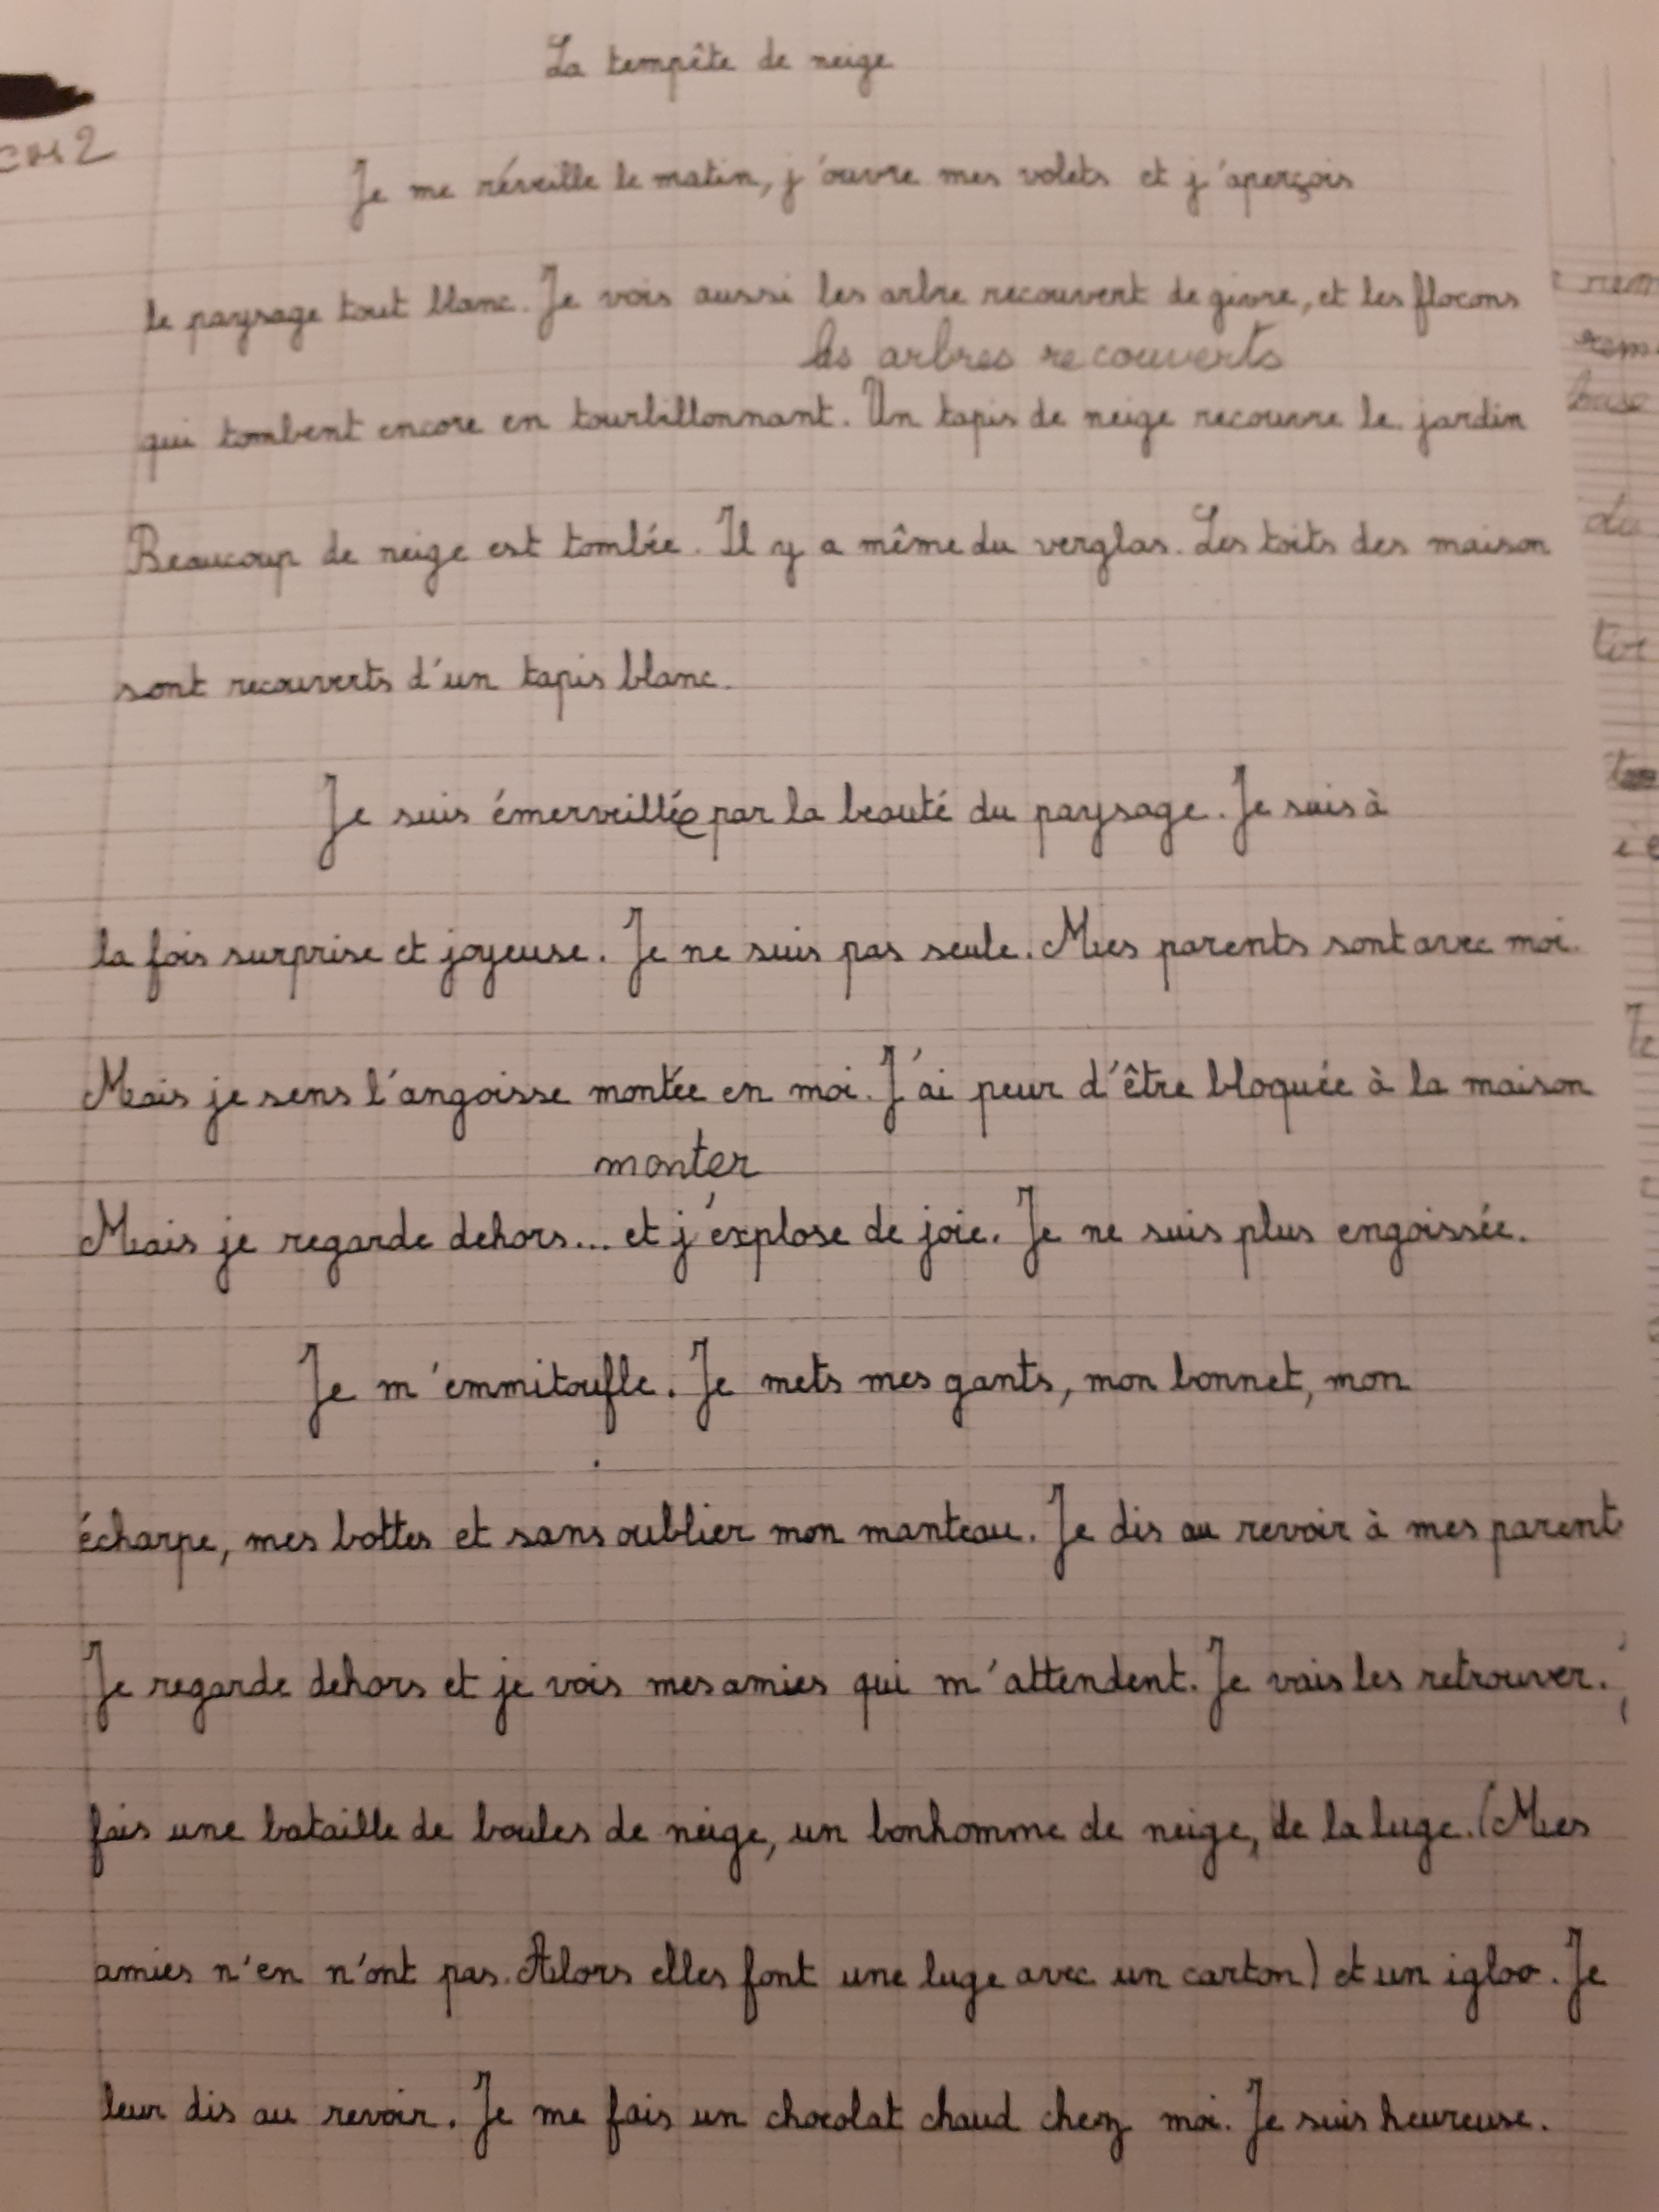 La tempête de neige
CM2
Je me réveille le matin, j'ouvre mes volets et j'aperçois
le paysage tout blanc. Je vois aussi les arbre recouvert de givre, et les flocons
les arbres recouverts
qui tombent encore en tourbillonnant. Un tapis de neige recouvre le jardin
Beaucoup de neige est tombée. Il y a même du verglas. Les toits des maison
sont recouverts d'un tapis blanc.
Je suis émerveillée par la beauté du paysage. Je suis à
la fois surprise et joyeuse. Je ne suis pas seule. Mes parents sont avec moi.
Mais je sens l'angoisse montée en moi. J'ai peur d'être bloquée à la maison
monter
Mais je regarde dehors... et j'explose de joie. Je ne suis plus engoissée.
Je m'emmitoufle. Je mets mes gants, mon bonnet, mon
écharpe, mes bottes et sans oublier mon manteau. Je dis au revoir à mes parent
Je regarde dehors et je vois mes amies qui m'attendent. Je vais les retrouver.
fais une bataille de boules de neige, un bonhomme de neige, de la luge. (Mes
amies n'en n'ont pas. Alors elles font une luge avec un carton) et un igloo. Je
leur dis au revoir. Je me fais un chocolat chaud chez moi. Je suis heureuse.